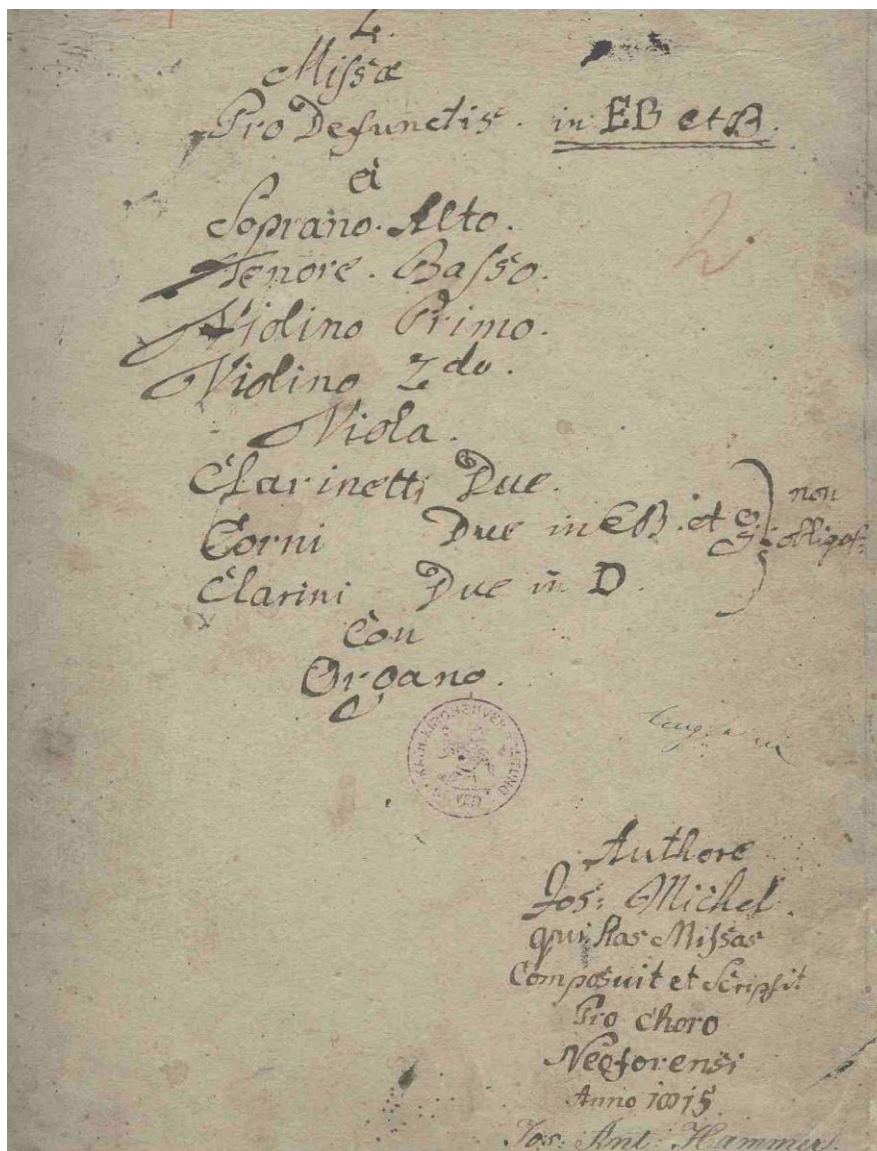 2.
Missæ
Pro Defunctis. in EB et B.
a
Soprano. Alto.
Tenore. Basso.
Violino Primo.
Violino 2do.
Viola.
Clarinetti Due.
Corni Due in EB. et
Clarini Due in D.
non
obligat:
Con
Organo.
2
Authore
Jos: Michel.
qui has Missas
Composuit et Scripsit
Pro Choro
Neoforensi
Anno 1815
Jos: Ant: Hammer.